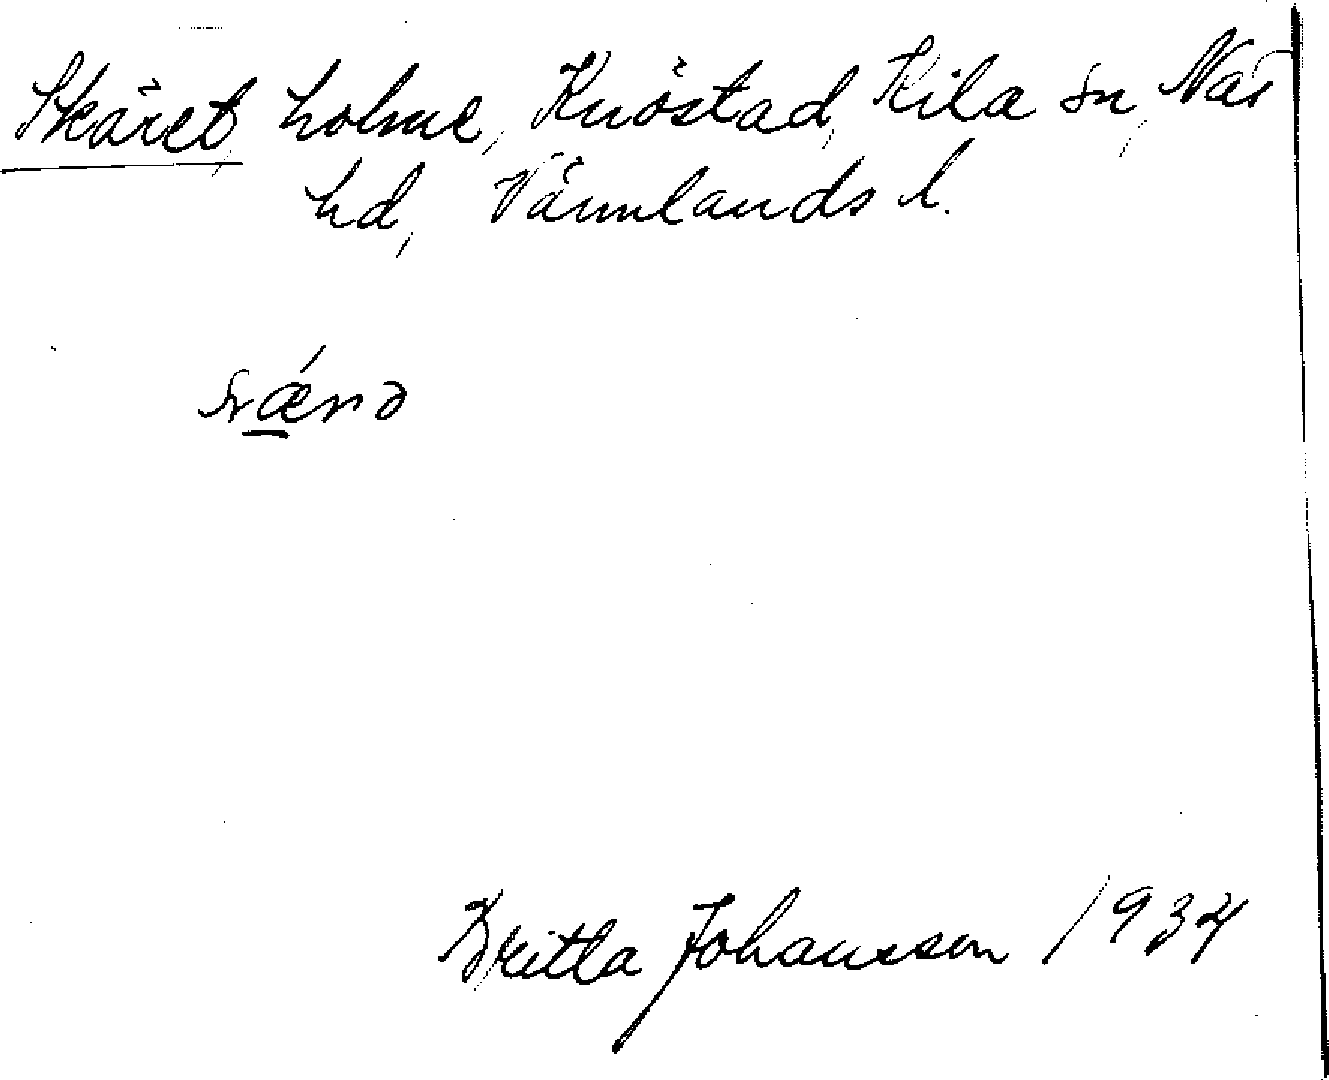 Skäret, holme, Knöstad, Kila sn, När
hd, Värmlands l.
Britta Johansson 1934